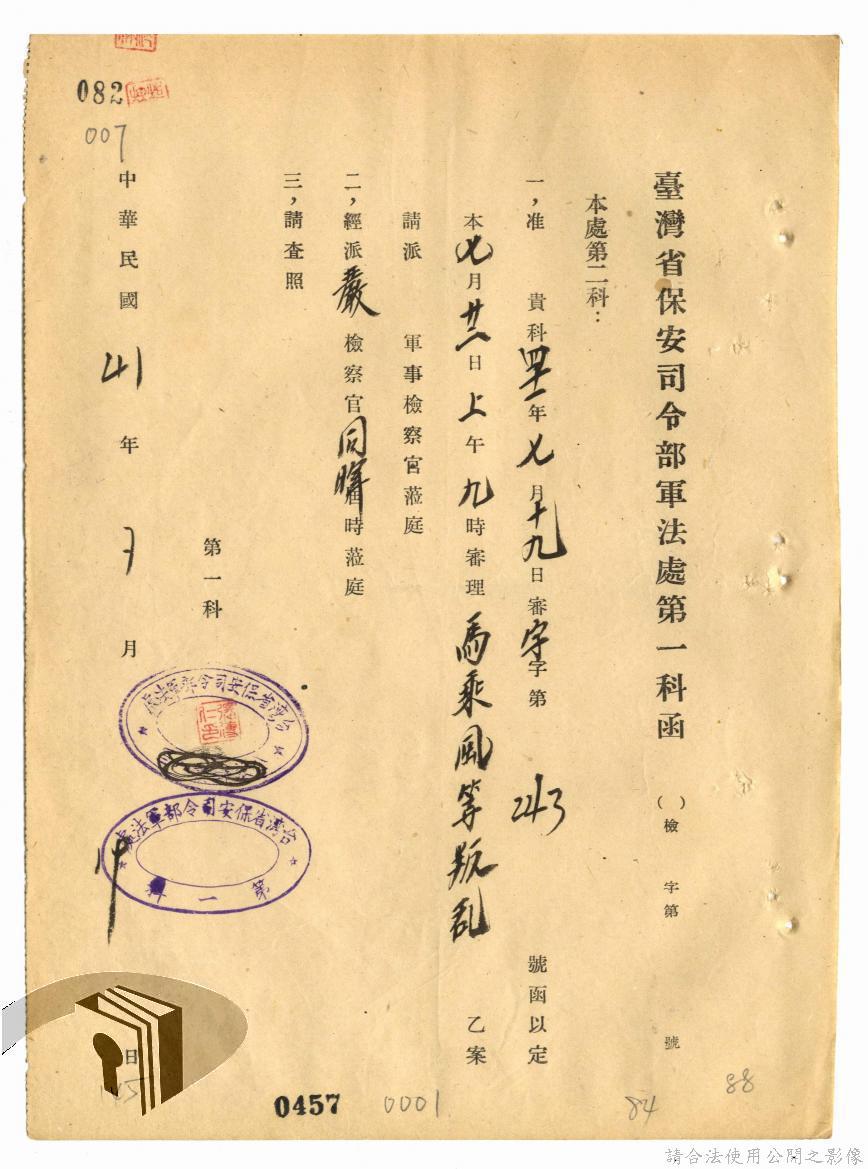 臺灣省保安司令部軍法處第一科函
( )檢 字第 號
本處第二科:
一,准 貴科四十一年七月十九日審字字第 243 號函以定
本七月廿二日上午九時審理 馬乘風等叛乱 乙案
請派 軍事檢察官蒞庭
二,經派嚴 檢察官同暉屆時蒞庭
三,請查照
第一科
台灣省保安司令部軍法處
台灣省保安司令部軍法處
第一科
中華民國 41 年 7 月 日
082
007
0457
0001
84
88
請合法使用公開之影像